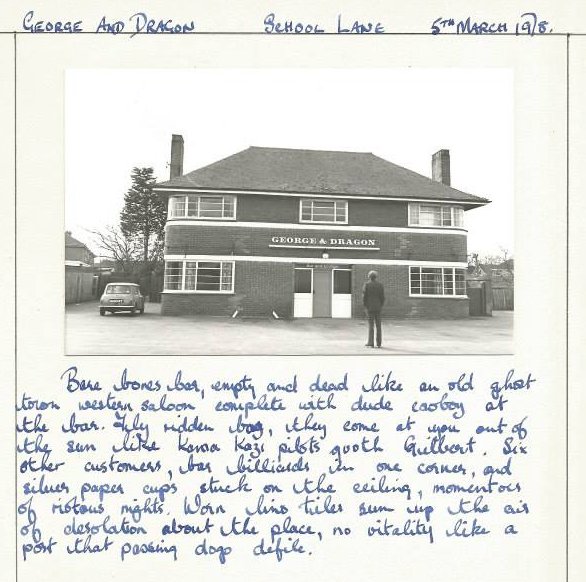 GEORGE AND DRAGON SCHOOL LANE 5TH MARCH 1978.
GEORGE & DRAGON
Bare bones bar, empty and dead like an old ghost
town western saloon complete with dude cooboy at
the bar. Fly ridden bog, they come at you out of
the sun like Kama Kazi pilots quoth Guilbert. Six
other customers, bar billiards in one corner, and
silver paper cups stuck on the ceiling, momentoes
of riotous nights. Worn lino tiles sum up the air
of desolation about the place, no vitality like a
post that passing dogs defile.